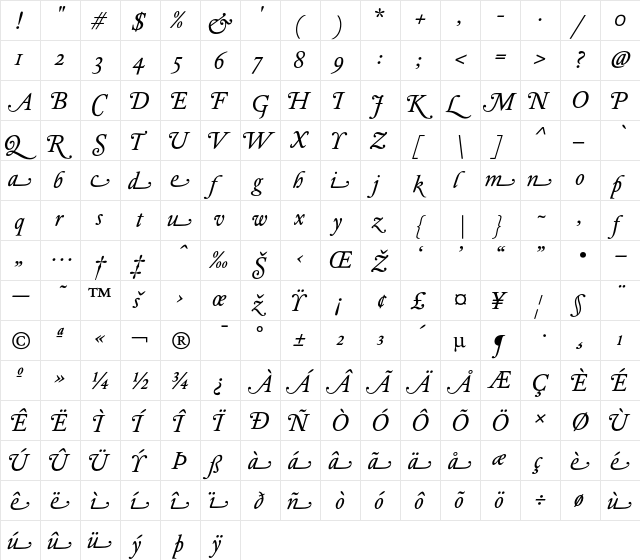 ! " # $ % & ' ( ) * + , - . / 0
1 2 3 4 5 6 7 8 9 : ; < = > ? @
A B C D E F G H I J K L M N O P
Q R S T U V W X Y Z [ \ ] ^ _ `
a b c d e f g h i j k l m n o p
q r s t u v w x y z { | } ~ , ƒ
„ … † ‡ ˆ ‰ Š ‹ Œ Ž ‘ ’ “ ” • –
— ˜ ™ š › œ ž Ÿ ¡ ¢ £ ¤ ¥ ¦ § ¨
© ª « ¬ ® ¯ ° ± ² ³ ´ µ ¶ · ¸ ¹
º » ¼ ½ ¾ ¿ À Á Â Ã Ä Å Æ Ç È É
Ê Ë Ì Í Î Ï Ð Ñ Ò Ó Ô Õ Ö × Ø Ù
Ú Û Ü Ý Þ ß à á â ã ä å æ ç è é
ê ë ì í î ï ð ñ ò ó ô õ ö ÷ ø ù
ú û ü ý þ ÿ